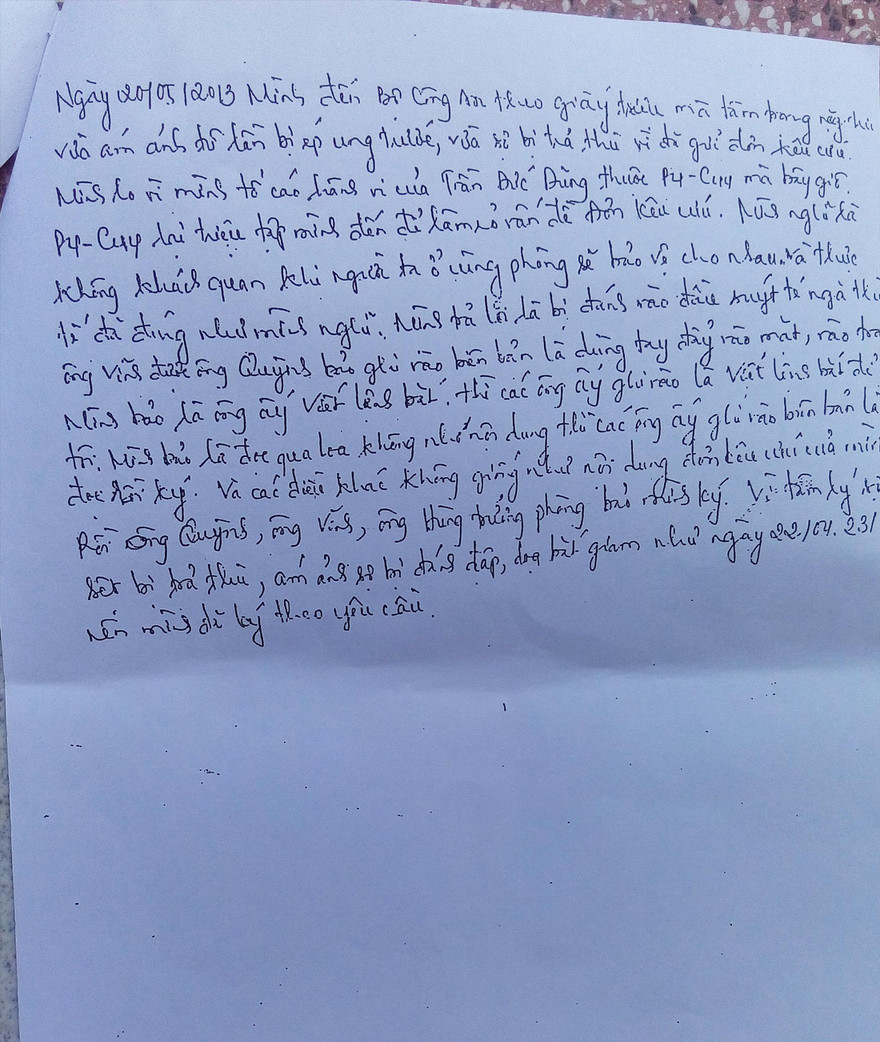 Ngày 20/05/2013 Mình đến Bộ Công An theo giấy triệu mà tâm trạng nặng
vừa ám ảnh từ lần bị ép cung trước, vừa sợ bị trả thù vì đã gửi đơn kêu cứu.
Mình lo vì mình tố cáo hành vi của Trần Đức Dũng thuộc P4-C44 mà bây giờ
P4-C44 lại triệu tập mình đến để làm rõ vấn đề Đơn kêu cứu. Mình nghĩ là
không khách quan khi người ta ở cùng phòng sẽ bảo vệ cho nhau. và thực
tế đã đúng như mình nghĩ. Mình trả lời là bị đánh vào đầu suýt té ngã thì
ông Vĩnh được ông Quỳnh bảo ghi vào biên bản là dùng tay đẩy vào mặt, vào
Mình bảo là ông ấy viết lệnh bắt. thì các ông ấy ghi vào là viết lệnh bắt để
Mình bảo là đọc qua loa không nhớ nội dung thì các ông ấy ghi vào biên bản là
đọc rồi ký. Và các điều khác không giống như nội dung đơn kêu cứu của mình
Rồi ông Quỳnh, ông Vĩnh, ông Hùng trưởng phòng bảo mình ký. Vì tâm lý
sợ bị trả thù, ám ảnh sợ bị đánh đập, dọa bắt giam như ngày 22/04. 23/
nên mình đã ký theo yêu cầu.